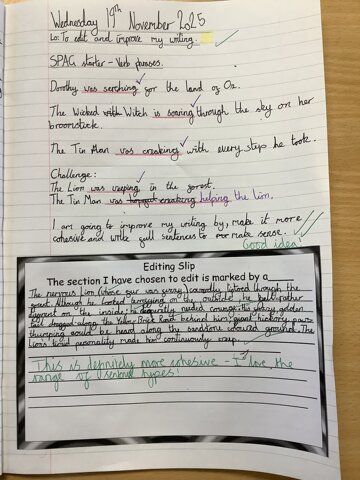 Wednesday 19th November 2025
Lo: To edit and improve my writing.
SPAG starter - Verb phrases.
Dorothy was serching for the land of Oz.
The Wicked with Witch is soaring through the sky on her
broomstick.
The Tin Man was creaking with every step he took.
Challenge:
The Lion was weeping in the forest.
The Tin Man was creaking helping the lion.
I am going to improve my writing by, make it more
cohesive and write full sentences to make sense.
Good idea!
Editing Slip
The section I have chosen to edit is marked by a
The nervous lion (whose fur was sunny) cowardly through the
forest. Although he looked on the outside he felt rather
on the inside; he needed courage. his golden
tail dragged along the Yellow Brick Road behind him; giant paws
thumping could be heard along the coloured ground. The
lion's timid personality made him continuously weep.
This is definitely more cohesive - I love the
range of sentence types!